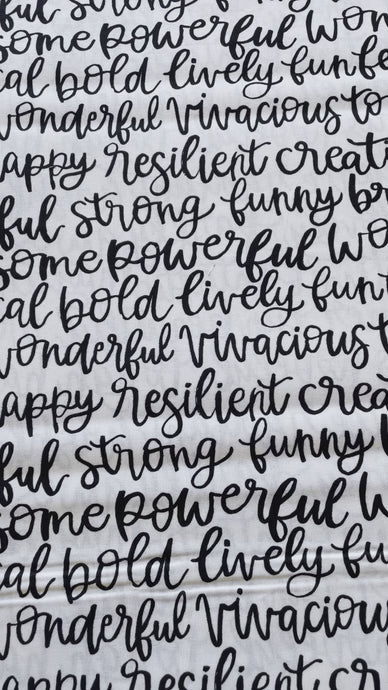 ful strong funny
some powerful won
cal bold lively funfe
wonderful vivacious to
appy resilient creati
ful strong funny br
some powerful wo
cal bold lively fun
wonderful vivacious t
appy resilient crea
ful strong funny
some powerful w
cal bold lively fu
wonderful vivaciou
appy resilient cr